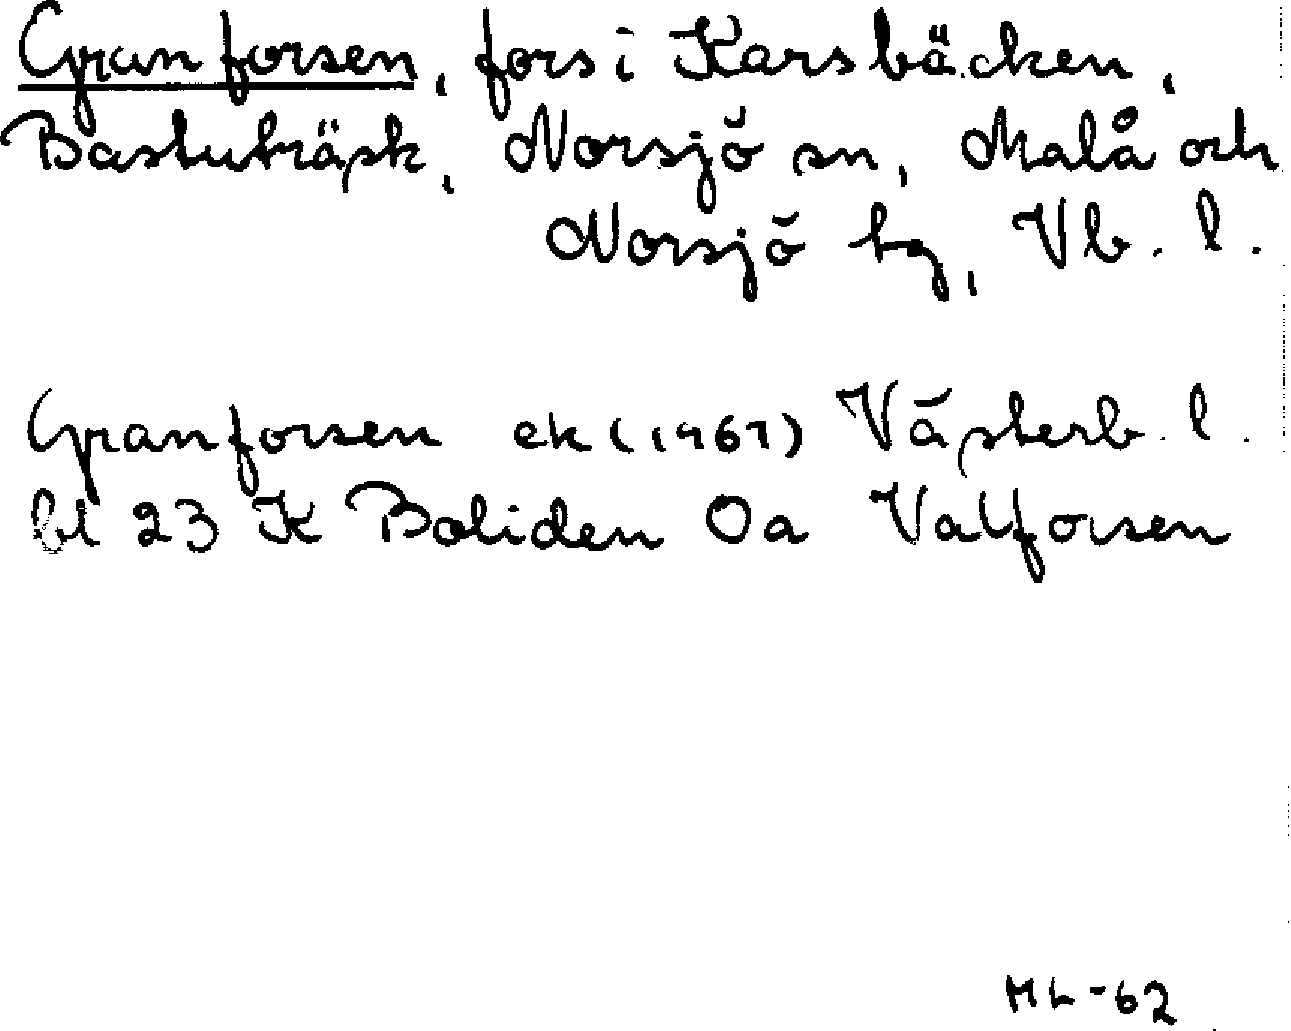 Granforsen, fors i Karsbäcken,
Bastuträsk, Norsjö sn, Malå och
Norsjö tg, Vb. l.
Granforsen ek (1961) Västerb. l.
bl 23 K Boliden Oa Valforsen
ML-62